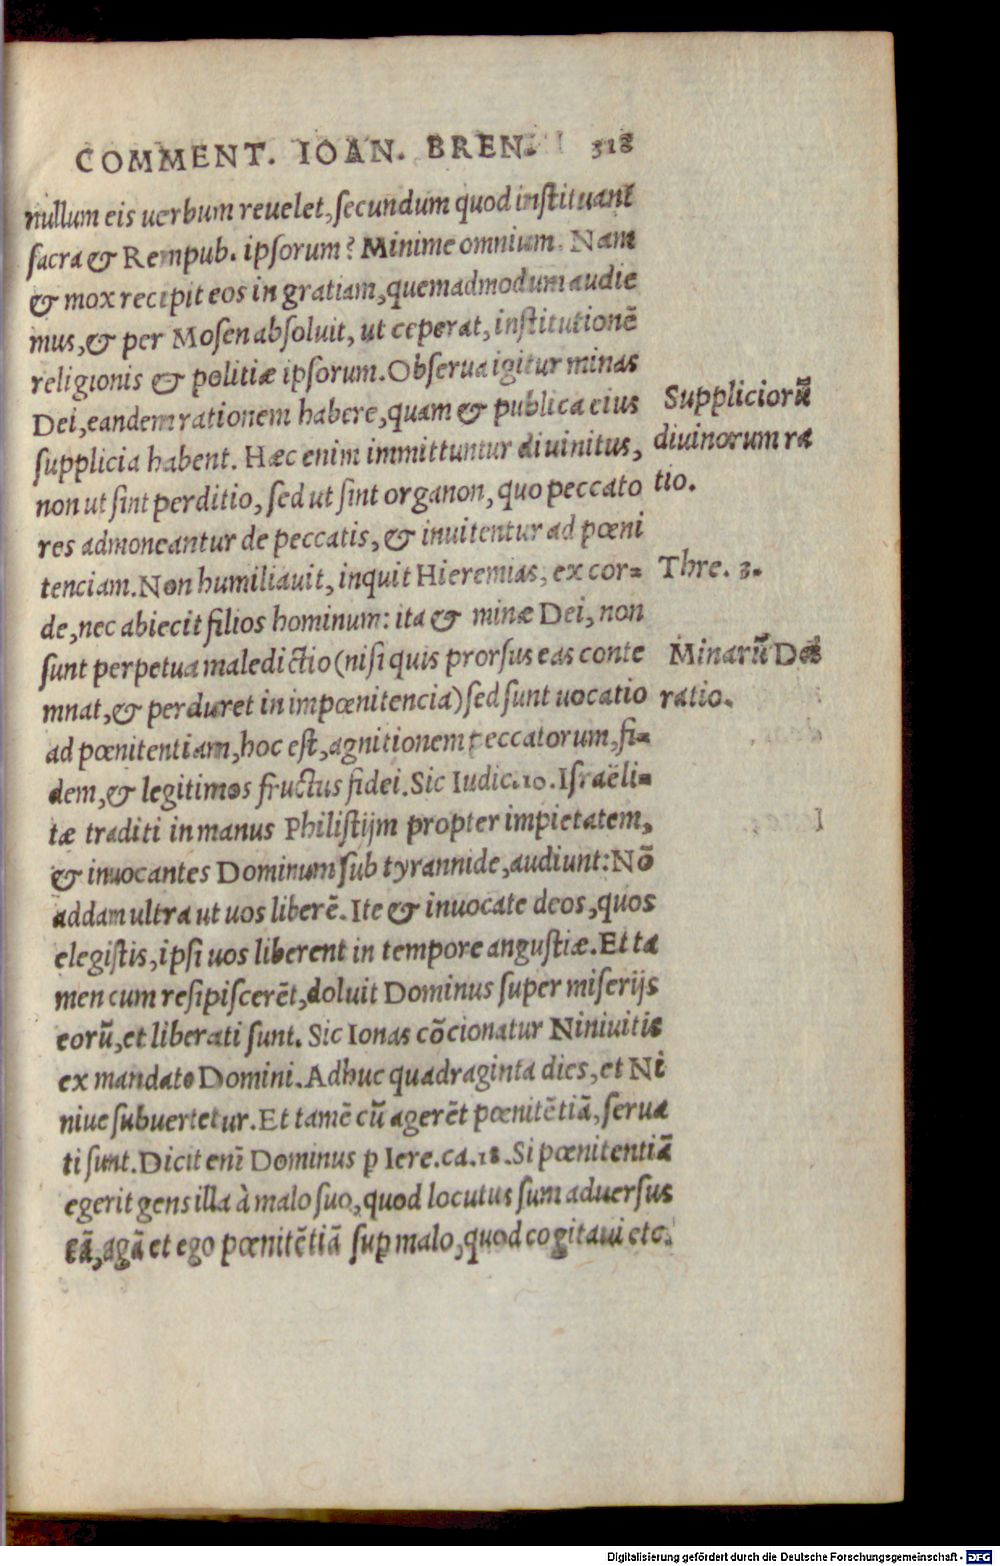 COMMENT. IOAN. BREN. 318
nullum eis uerbum reuelet, ſecundum quod inſtituant
ſacra & Rempub. ipſorum? Minime omnium. Nam
& mox recipit eos in gratiam, quemadmodum audie
mus, & per Moſen abſoluit, ut ceperat, inſtitutionē
religionis & politiæ ipſorum. Obſerua igitur minas
Dei, eandem rationem habere, quam & publica eius
ſupplicia habent. Hæc enim immittuntur diuinitus,
non ut ſint perditio, ſed ut ſint organon, quo peccato
res admoneantur de peccatis, & inuitentur ad pœni
tenciam. Non humiliauit, inquit Hieremias, ex cor=
de, nec abiecit filios hominum: ita & minæ Dei, non
ſunt perpetua maledictio (niſi quis prorſus eas conte
mnat, & perduret in impœnitencia) ſed ſunt uocatio
ad pœnitentiam, hoc eſt, agnitionem peccatorum, fi=
dem, & legitimos fructus fidei. Sic Iudic. 10. Iſraëli=
tæ traditi in manus Philiſtijm propter impietatem,
& inuocantes Dominum ſub tyrannide, audiunt: Nō
addam ultra ut uos liberē. Ite & inuocate deos, quos
elegiſtis, ipſi uos liberent in tempore anguſtiæ. Et ta
men cum reſipiſcerēt, doluit Dominus ſuper miſerijs
eorū, et liberati ſunt. Sic Ionas cōcionatur Niniuitis
ex mandato Domini. Adhuc quadraginta dies, et Ni
niue ſubuertetur. Et tamē cū agerēt pœnitētiā, ſerua
ti ſunt. Dicit enī Dominus p̱ Iere. ca. 18. Si pœnitentiā
egerit gens illa à malo ſuo, quod locutus ſum aduerſus
eā, agā et ego pœnitētiā ſup̱ malo, quod cogitaui etc.
Suppliciorū
diuinorum ra
tio.
Thre. 3.
Minarū Dei
ratio.
Digitalisierung gefördert durch die Deutsche Forschungsgemeinschaft - DFG